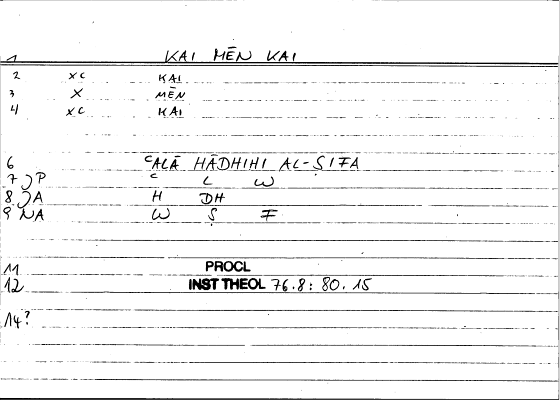 1 KAI MĒN KAI
2 XC KAI
3 X MĒN
4 XC KAI
6 ʿALĀ HĀDHIHI AL-ṢIFA
7 JP ʿ L W
8 JA H DH
9 NA W Ṣ F
11 PROCL
12 INST THEOL 76.8: 80.15
14?